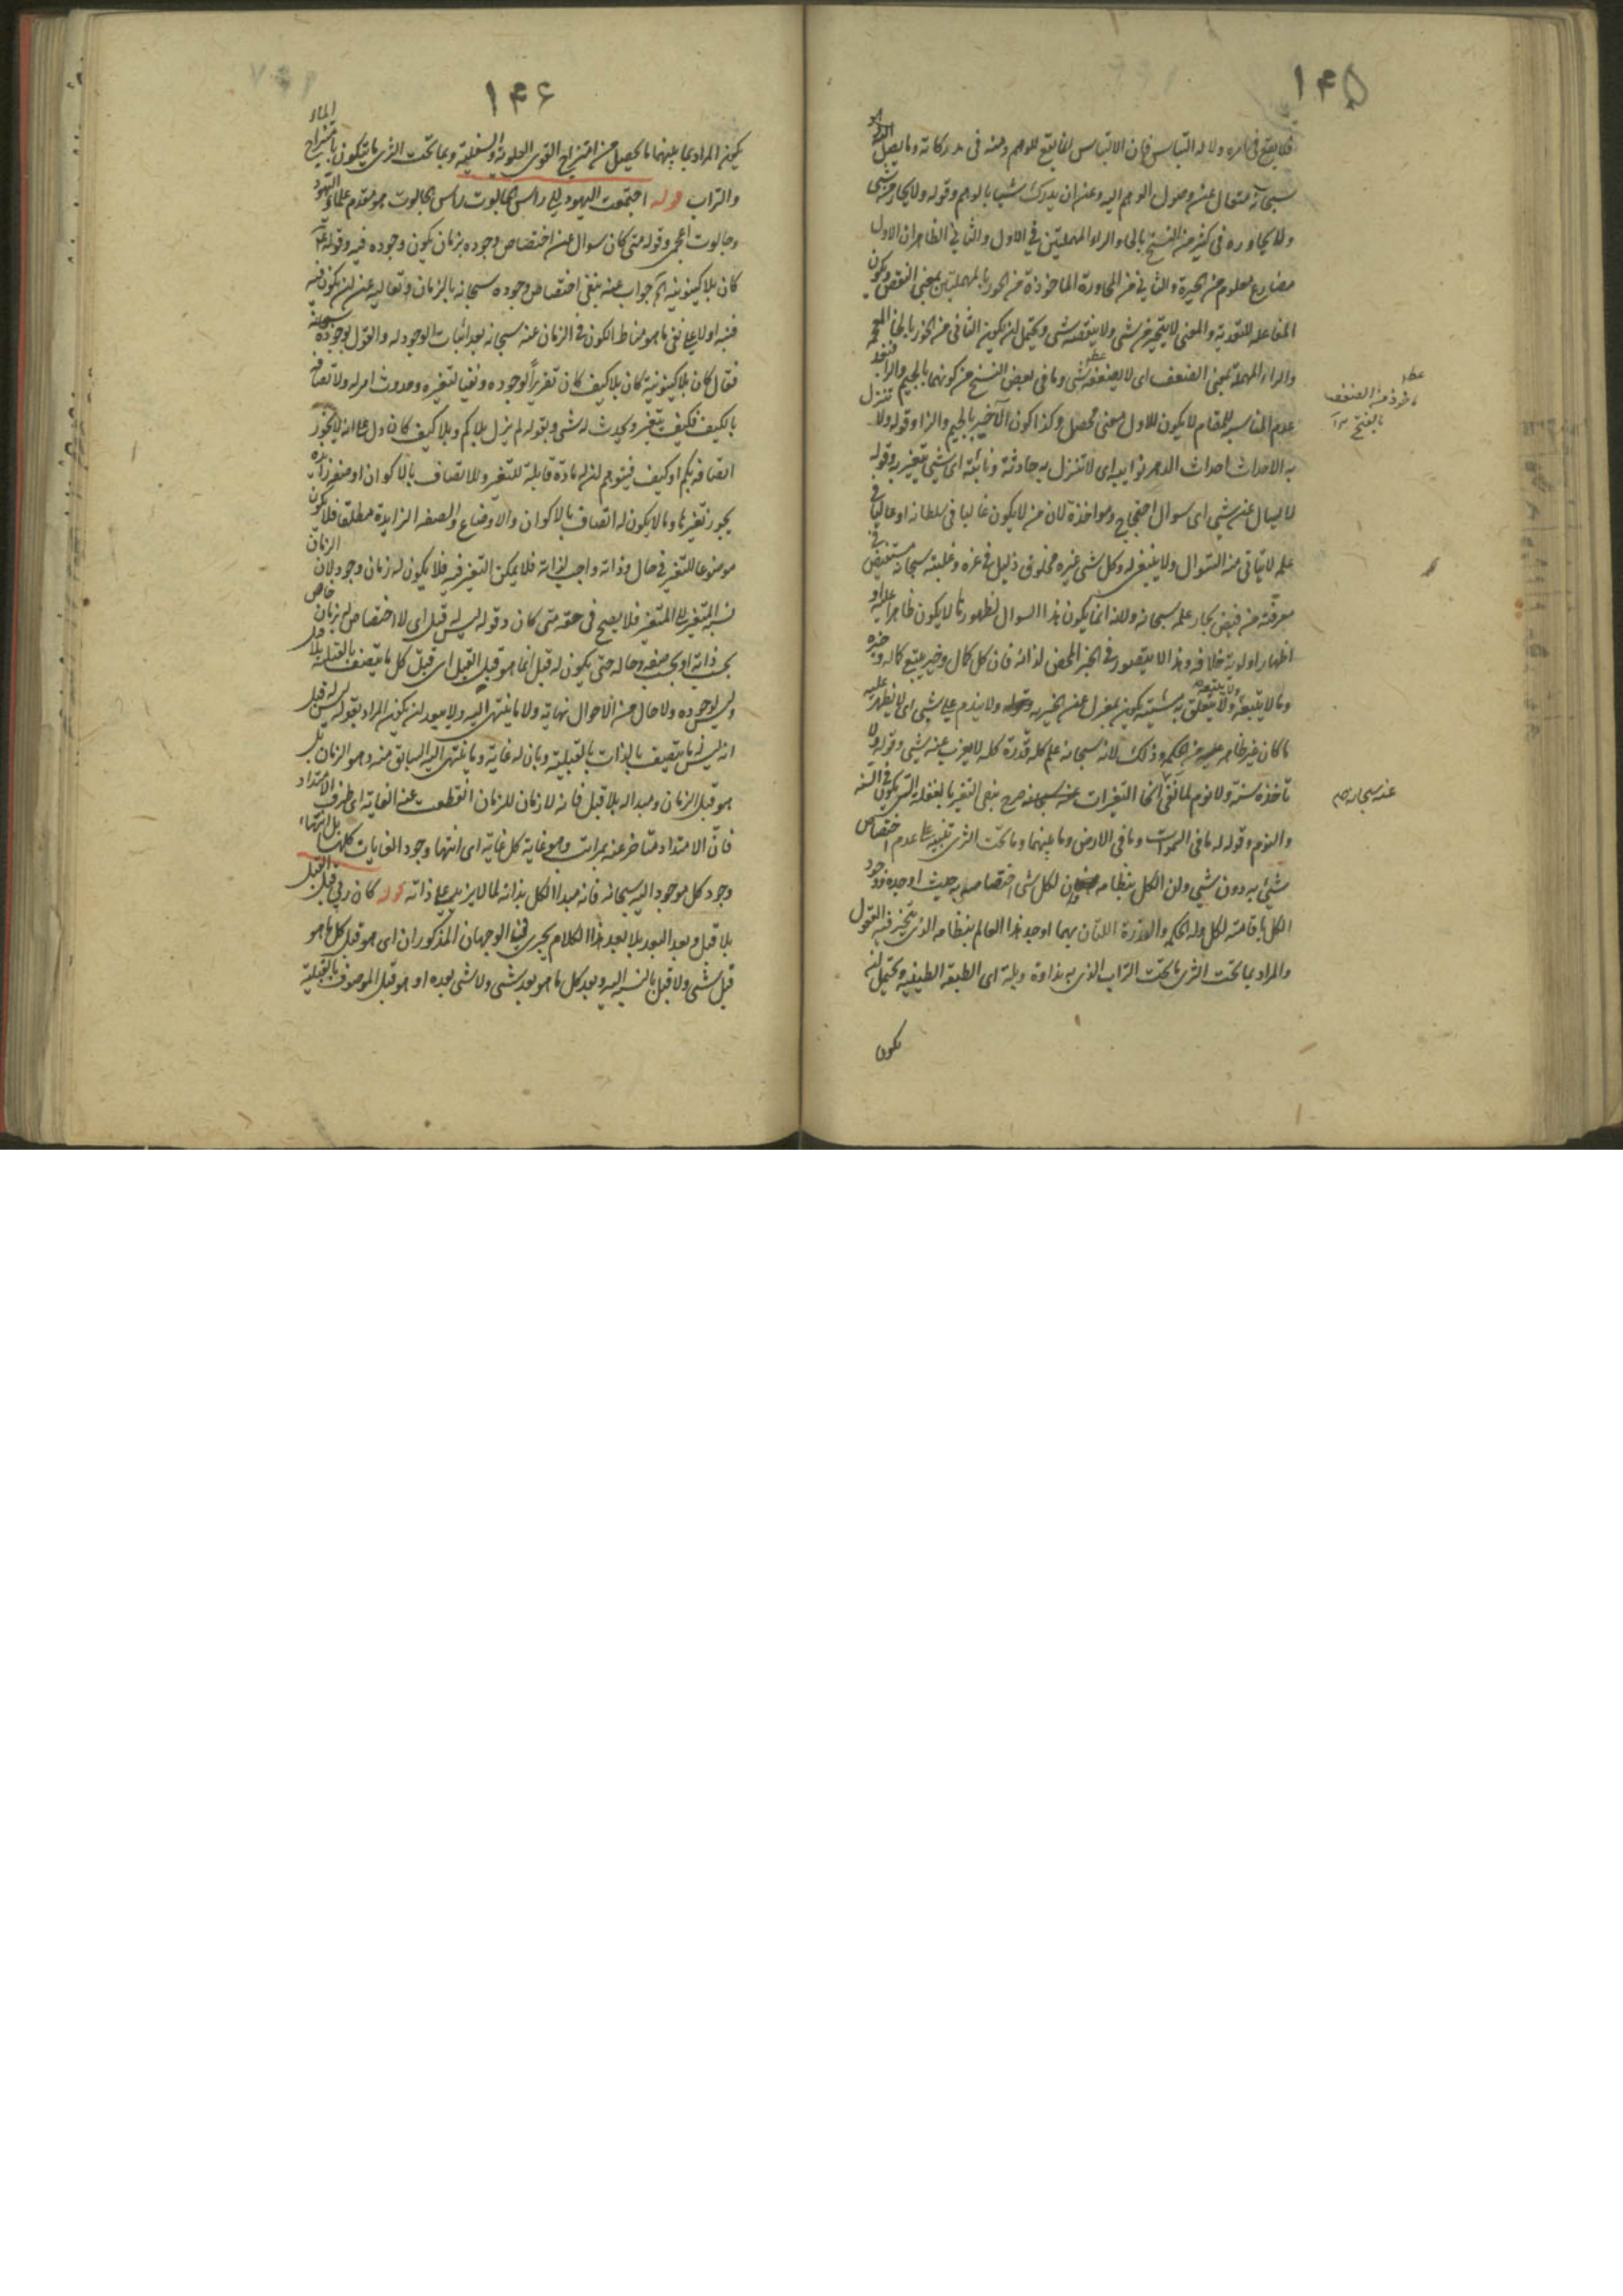 ١۴۵
فلا يقع في امره ولا له التباس فان الالتباس انما يقع للوهم ومنه في مدركاته وما يصل اليه الوهم
سبحانه متعال عن وصول الوهم اليه وعن ان يدرك شيئا بالوهم وقوله ولا يحار من شي
ولا يحاوره في كثير من النسخ بالحاء والراء المهملتين في الاول والثاني الظاهر ان الاول
مضارع معلوم من الحيرة والثاني من المحاورة الماخوذة من الحور بالمهملتين بمعنى النقص ويكون
المفاعلة للتعدية والمعنى لا يتحير من شي ولا ينقصه شي ويحتمل ان يكون الثاني من الخور بالخاء المعجمة
والراء المهملة بمعنى الضعف اى لا يضعفه شي وما في بعض النسخ من كونهما بالجيم والراء فبعد
عدم المناسبة للمقام لا يكون للاول معنى محصل وكذا كون الاخير بالجيم والزاء وقوله ولا تنزل
به الاحداث احداث الدهر نوايبه اى لا تنزل به حادثة ونائبة اى شي يتغير به وقوله
لا يسال عن شي اى سوال احتجاج ومواخذة لان من لا يكون غالبا في سلطانه او عاليا في
علمه لا يتاتى منه السوال ولا ينبغي له وكل شي غيره مخلوق ذليل في عزه وغلبته سبحانه مستفيض في
معرفته من فيض بحار علمه سبحانه ولانه انما يكون هذا السوال لظهور ما لا يكون ظاهرا عليه او
اظهار اولوية خلافه وهذا لا يتصور في الخير المحض لذاته فان كل كمال وخير يتبع كماله وخيره
وما لا يتبعه ولا يتعلق به مشيته يكون بمعزل عن الخيرية وقوله ولا يندم على شي اى لا يظهر عليه
ما كان غير ظاهر عليه من الحكم وذلك لانه سبحانه علم كله قدرة كله لا يعزب عنه شي وقوله ولا
تاخذه سنة ولا نوم لما نفى انحاء التغيرات عنه سبحانه صرح بنفى التغير بالغفلة التي يكون في السنة
والنوم وقوله له ما في السموات وما في الارض وما بينهما وما تحت الثرى تنبيه على عدم اختصاص
شي به دون شي وان الكل بنظامه لكل شي اختصاص به حيث اوجده ووجود
الكل باقامته لكل وله الحكم والقدرة اللتان بهما اوجد هذا العالم بنظامه الذي يتحير فيه العقول
والمراد بما تحت الثرى ما تحت التراب الذي به نداوة وبلة اى الطبقة الطينية ويحتمل ان
يكون
ماخوذ من الضعف
بالفتح
عنه سبحانه
١۴۶
يكون المراد بما بينهما ما يحصل من امتزاج القوى العلوية والسفلية وبما تحت الثرى ما يتكون بامتزاج الماء
والتراب قوله اجتمعت اليهود الى راس الجالوت راس الجالوت هو مقدم علماء اليهود
وجالوت اعجمى وقوله متى كان سوال عن اختصاص وجوده بزمان يكون وجوده فيه وقوله
كان بلا كينونية الخ جواب عنه بنفي اختصاص وجوده سبحانه بالزمان وتعاليه عن ان يكون فيه
فنبه اولا على نفي ما هو مناط الكون في الزمان عنه سبحانه بعد اثبات الوجود له والقول بوجوده سبحانه
فقال كان بلا كينونية كان بلا كيف كان تقريرا لوجوده ونفيا لتغيره وحدوث امر له ولاتصافه
بالكيف فكيف يتغير ويحدث له شي وبقوله لم يزل بلا كم وبلا كيف كان دل على انه لا يجوز
اتصافه بكم او كيف فيتوهم ان له مادة قابلة للتغير وللاتصاف بالاكوان او صفة زايدة
يجوز تغيرها وما لا يكون له اتصاف بالاكوان والاوضاع والصفة الزايدة مطلقا فلا يكون
موضوعا للتغير في حال وذاته واجب لذاته فلا يمكن التغير فيه فلا يكون له زمان وجود لان الزمان
نسبة المتغير الى المتغير فلا يصح في حقه متى كان وقوله ليس له قبل اى لا اختصاص له بزمان خاص
بحسب ذاته او بحسب صفة وحالة حتى يكون له قبل انما هو قبل القبل اى قبل كل ما يتصف بالقبلية بلا قبل
وليس لوجوده ولا حال من الاحوال نهاية ولا ما ينتهى اليه ولا يبعد ان يكون المراد بقوله ليس له قبل
انه ليس له ما يتصف بالذات بالقبلية وبان له غاية وما ينتهى اليه السابق منه وهو الزمان بل
هو قبل الزمان ومبدا له بلا قبل فانه لا زمان للزمان انقطعت عنه الغاية اى طرف الامتداد
فان الامتداد متاخر عنه بمراتب وهو غاية كل غاية اى انتهاء وجود الغايات كلها بل انتهاء
وجود كل موجود اليه سبحانه فانه مبدا الكل بذاته لما لا يزيد على ذاته قوله كان ربي قبل القبل
بلا قبل وبعد البعد بلا بعد هذا الكلام يجرى فيه الوجهان المذكوران اى هو قبل كل ما هو
قبل شي ولا قبل بالنسبة اليه وبعد كل ما هو بعد شي ولا شي بعده او هو قبل الموصوف بالقبلية